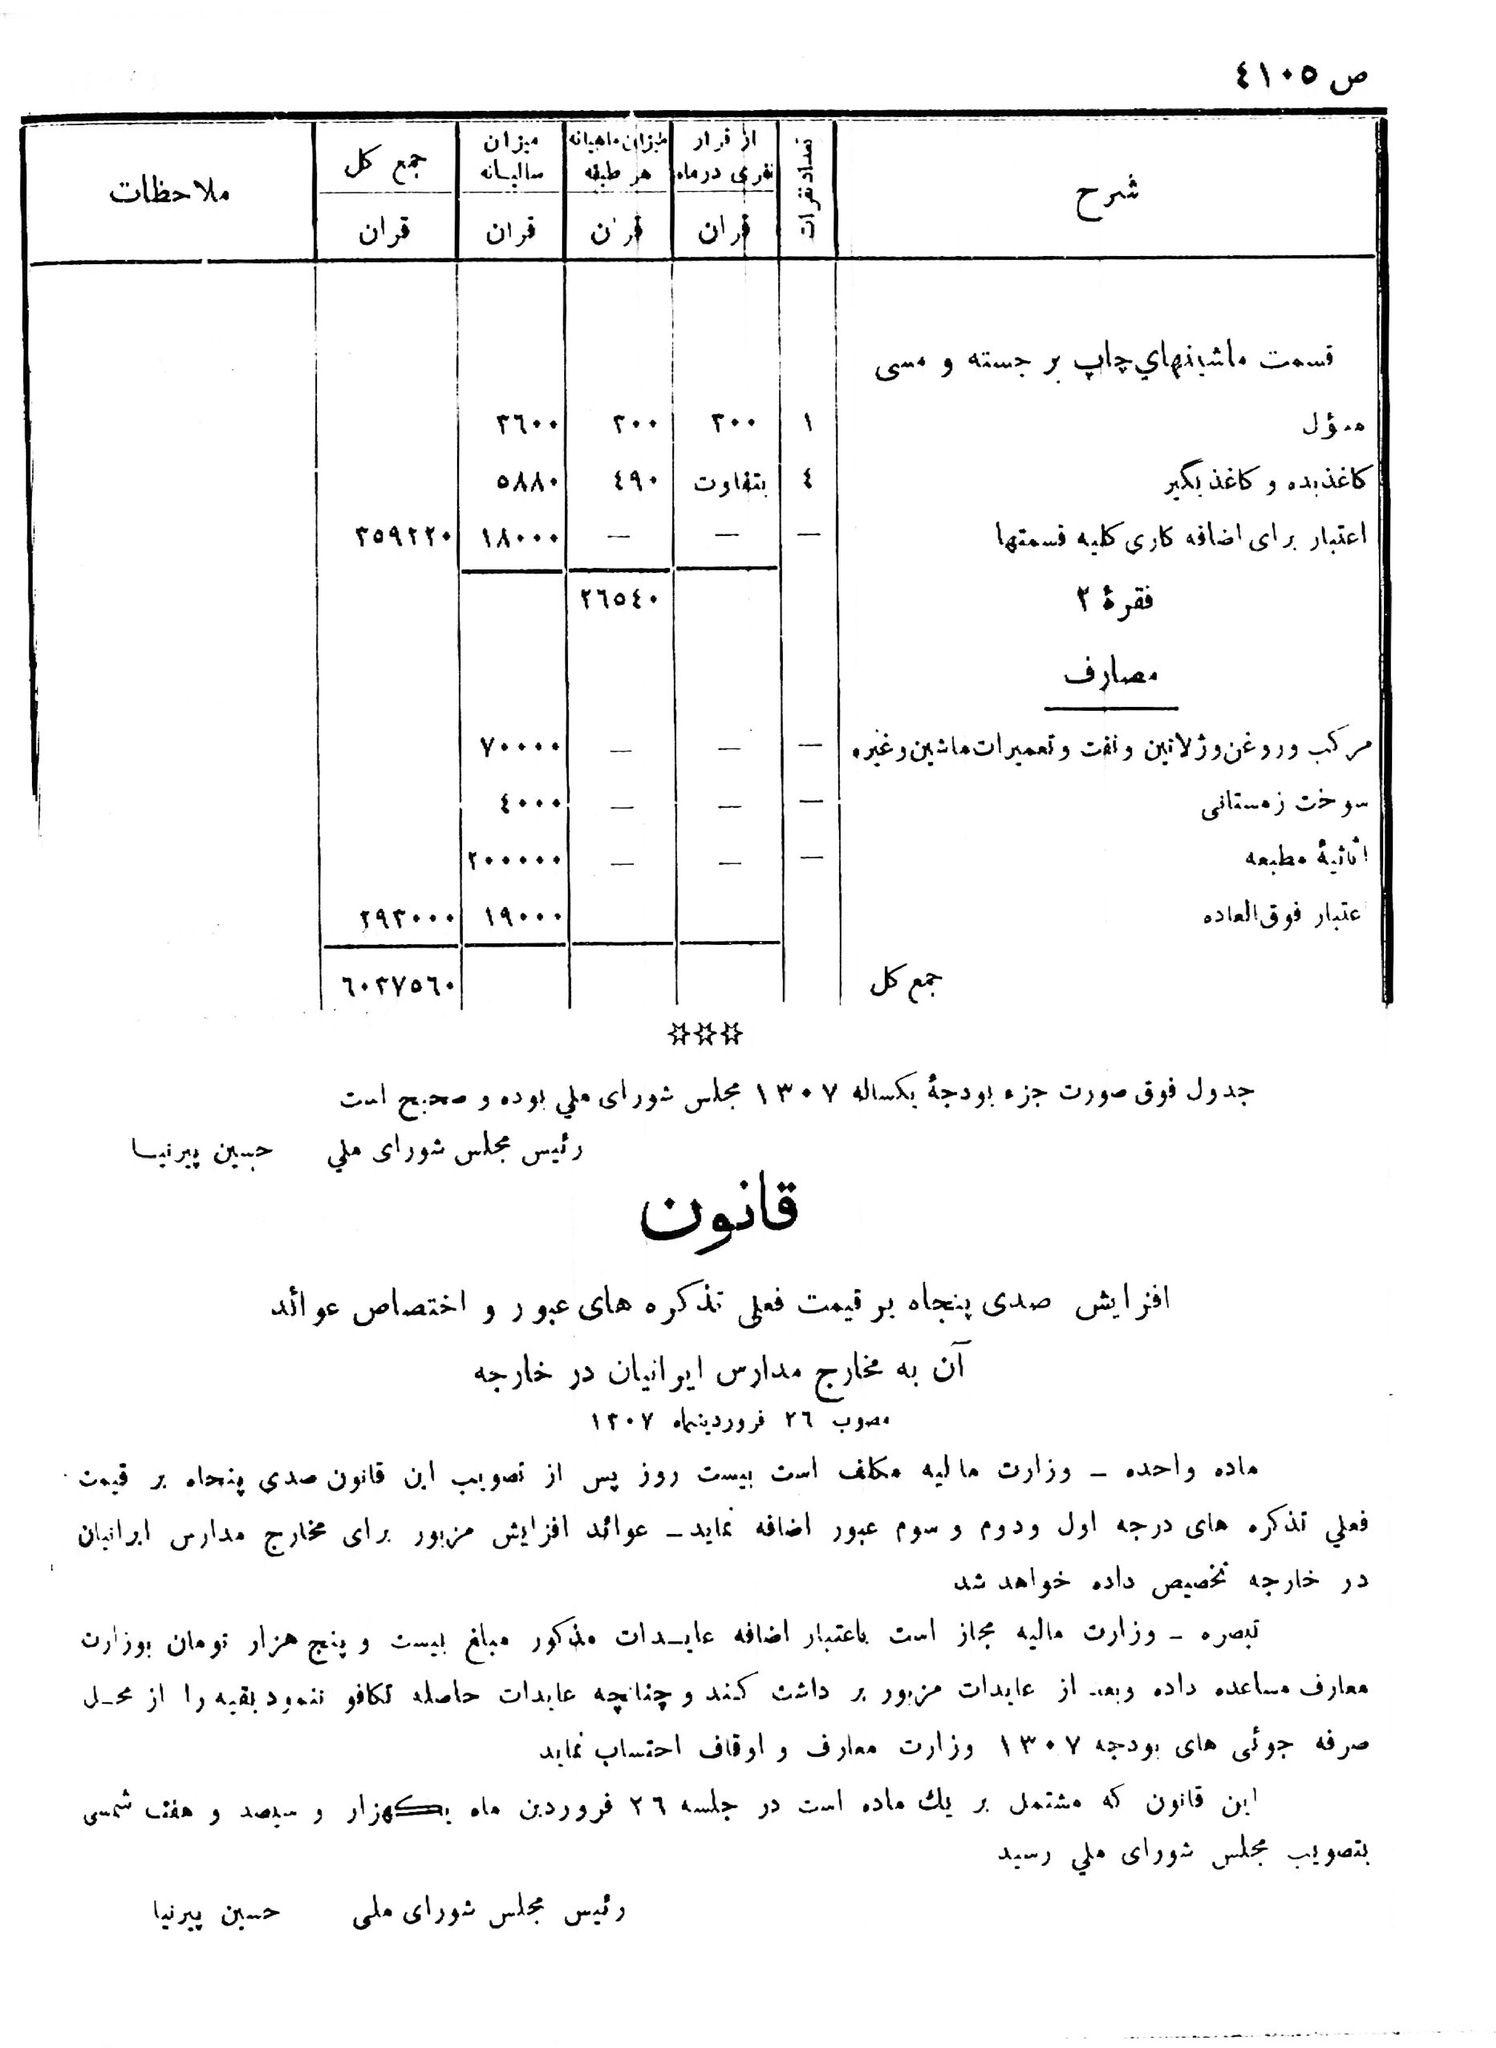 ص ٤١٠٥
شرح | تعداد نفرات | از قرار نفری در ماه | میزان ماهیانه هر طبقه | میزان سالیانه | جمع کل | ملاحظات
قران | قران | قران | قران
قسمت ماشینهای چاپ بر جسته و مسی
مسؤل | ١ | ٣٠٠ | ٣٠٠ | ٣٦٠٠
کاغذ بده و کاغذ بگیر | ٤ | بتفاوت | ٤٩٠ | ٥٨٨٠
اعتبار برای اضافه کاری کلیه قسمتها | — | — | — | ١٨٠٠٠ | ٣٥٩٢٢٠
فقرهٔ ٢ | ٢٦٥٤٠
مصارف
مرکب و روغن و ژلاتین و نفت و تعمیرات ماشین و غیره | — | — | — | ٧٠٠٠٠
سوخت زمستانی | — | — | — | ٤٠٠٠
اثاثیهٔ مطبعه | — | — | — | ٢٠٠٠٠٠
اعتبار فوق‌العاده | ١٩٠٠٠ | ٢٩٣٠٠٠
جمع کل | ٦٠٣٧٥٦٠
☆☆☆
جدول فوق صورت جزء بودجهٔ یکساله ١٣٠٧ مجلس شورای ملی بوده و صحیح است
رئیس مجلس شورای ملی حسین پیرنیا
قانون
افزایش صدی پنجاه بر قیمت فعلی تذکره های عبور و اختصاص عوائد
آن به مخارج مدارس ایرانیان در خارجه
مصوب ٢٦ فروردینماه ١٣٠٧
ماده واحده ـ وزارت مالیه مکلف است بیست روز پس از تصویب این قانون صدی پنجاه بر قیمت
فعلی تذکره های درجه اول ودوم و سوم عبور اضافه نماید ـ عوائد افزایش مزبور برای مخارج مدارس ایرانیان
در خارجه تخصیص داده خواهد شد
تبصره ـ وزارت مالیه مجاز است باعتبار اضافه عایدات مذکور مبلغ بیست و پنج هزار تومان بوزارت
معارف مساعده داده وبعد از عایدات مزبور بر داشت کند و چنانچه عایدات حاصله تکافو ننمود بقیه را از محل
صرفه جوئی های بودجه ١٣٠٧ وزارت معارف و اوقاف احتساب نماید
این قانون که مشتمل بر یك ماده است در جلسه ٢٦ فروردین ماه یکهزار و سیصد و هفت شمسی
بتصویب مجلس شورای ملی رسید
رئیس مجلس شورای ملی حسین پیرنیا